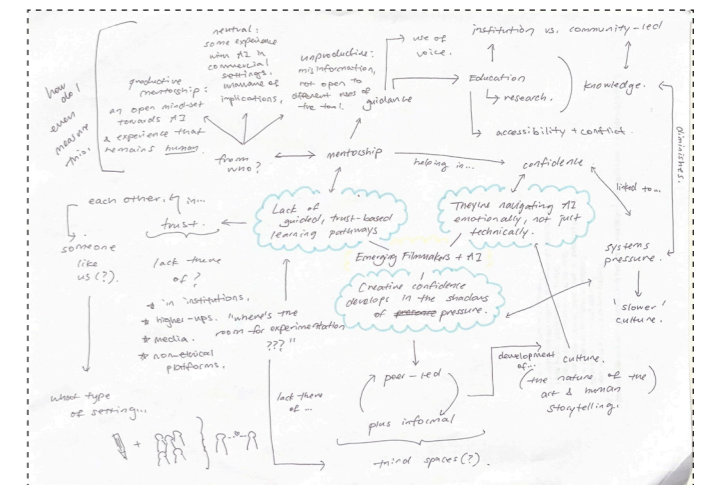 how
do I
even
measure
this.
productive
mentorship:
an open mind-set
towards AI
& experience that
remains human.
neutral:
some experience
with AI in
commercial
settings.
unaware of
implications.
unproductive:
misinformation,
not open to
different uses of
the tool.
guidance
use of
voice.
institution vs. community-led
Education
research.
knowledge.
accessibility + conflict.
diminishes.
from
who?
mentorship
helping in...
confidence
linked to...
each other.
in...
trust.
someone
like
us(?).
lack there
of?
* in institutions.
* higher-ups.
* media.
* non-ethical
platforms.
"where's the
room for experimentation
???"
Lack of
guided, trust-based
learning pathways
They're navigating AI
emotionally, not just
technically.
Emerging Filmmakers + AI
Creative confidence
develops in the shadows
of pressure pressure.
systems
pressure.
'slower'
culture.
what type
of setting...
lack there
of...
peer-led
plus informal
third spaces(?).
development
of...
culture.
(the nature of the
art & human
storytelling.)